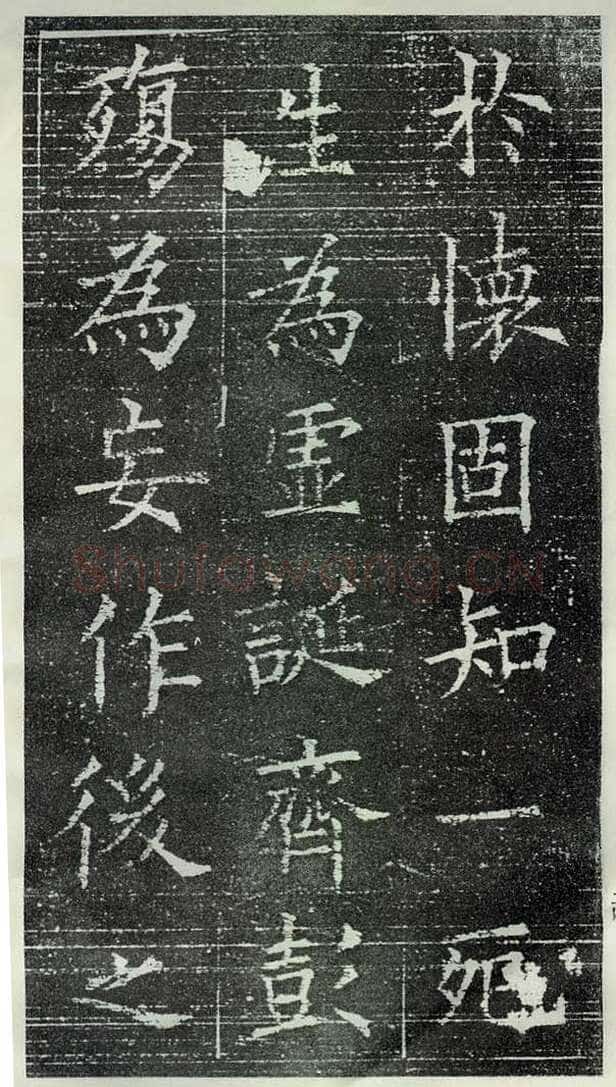 於懷固知一死
生為虛誕齊彭
殤為妄作後之
Shufawang.CN